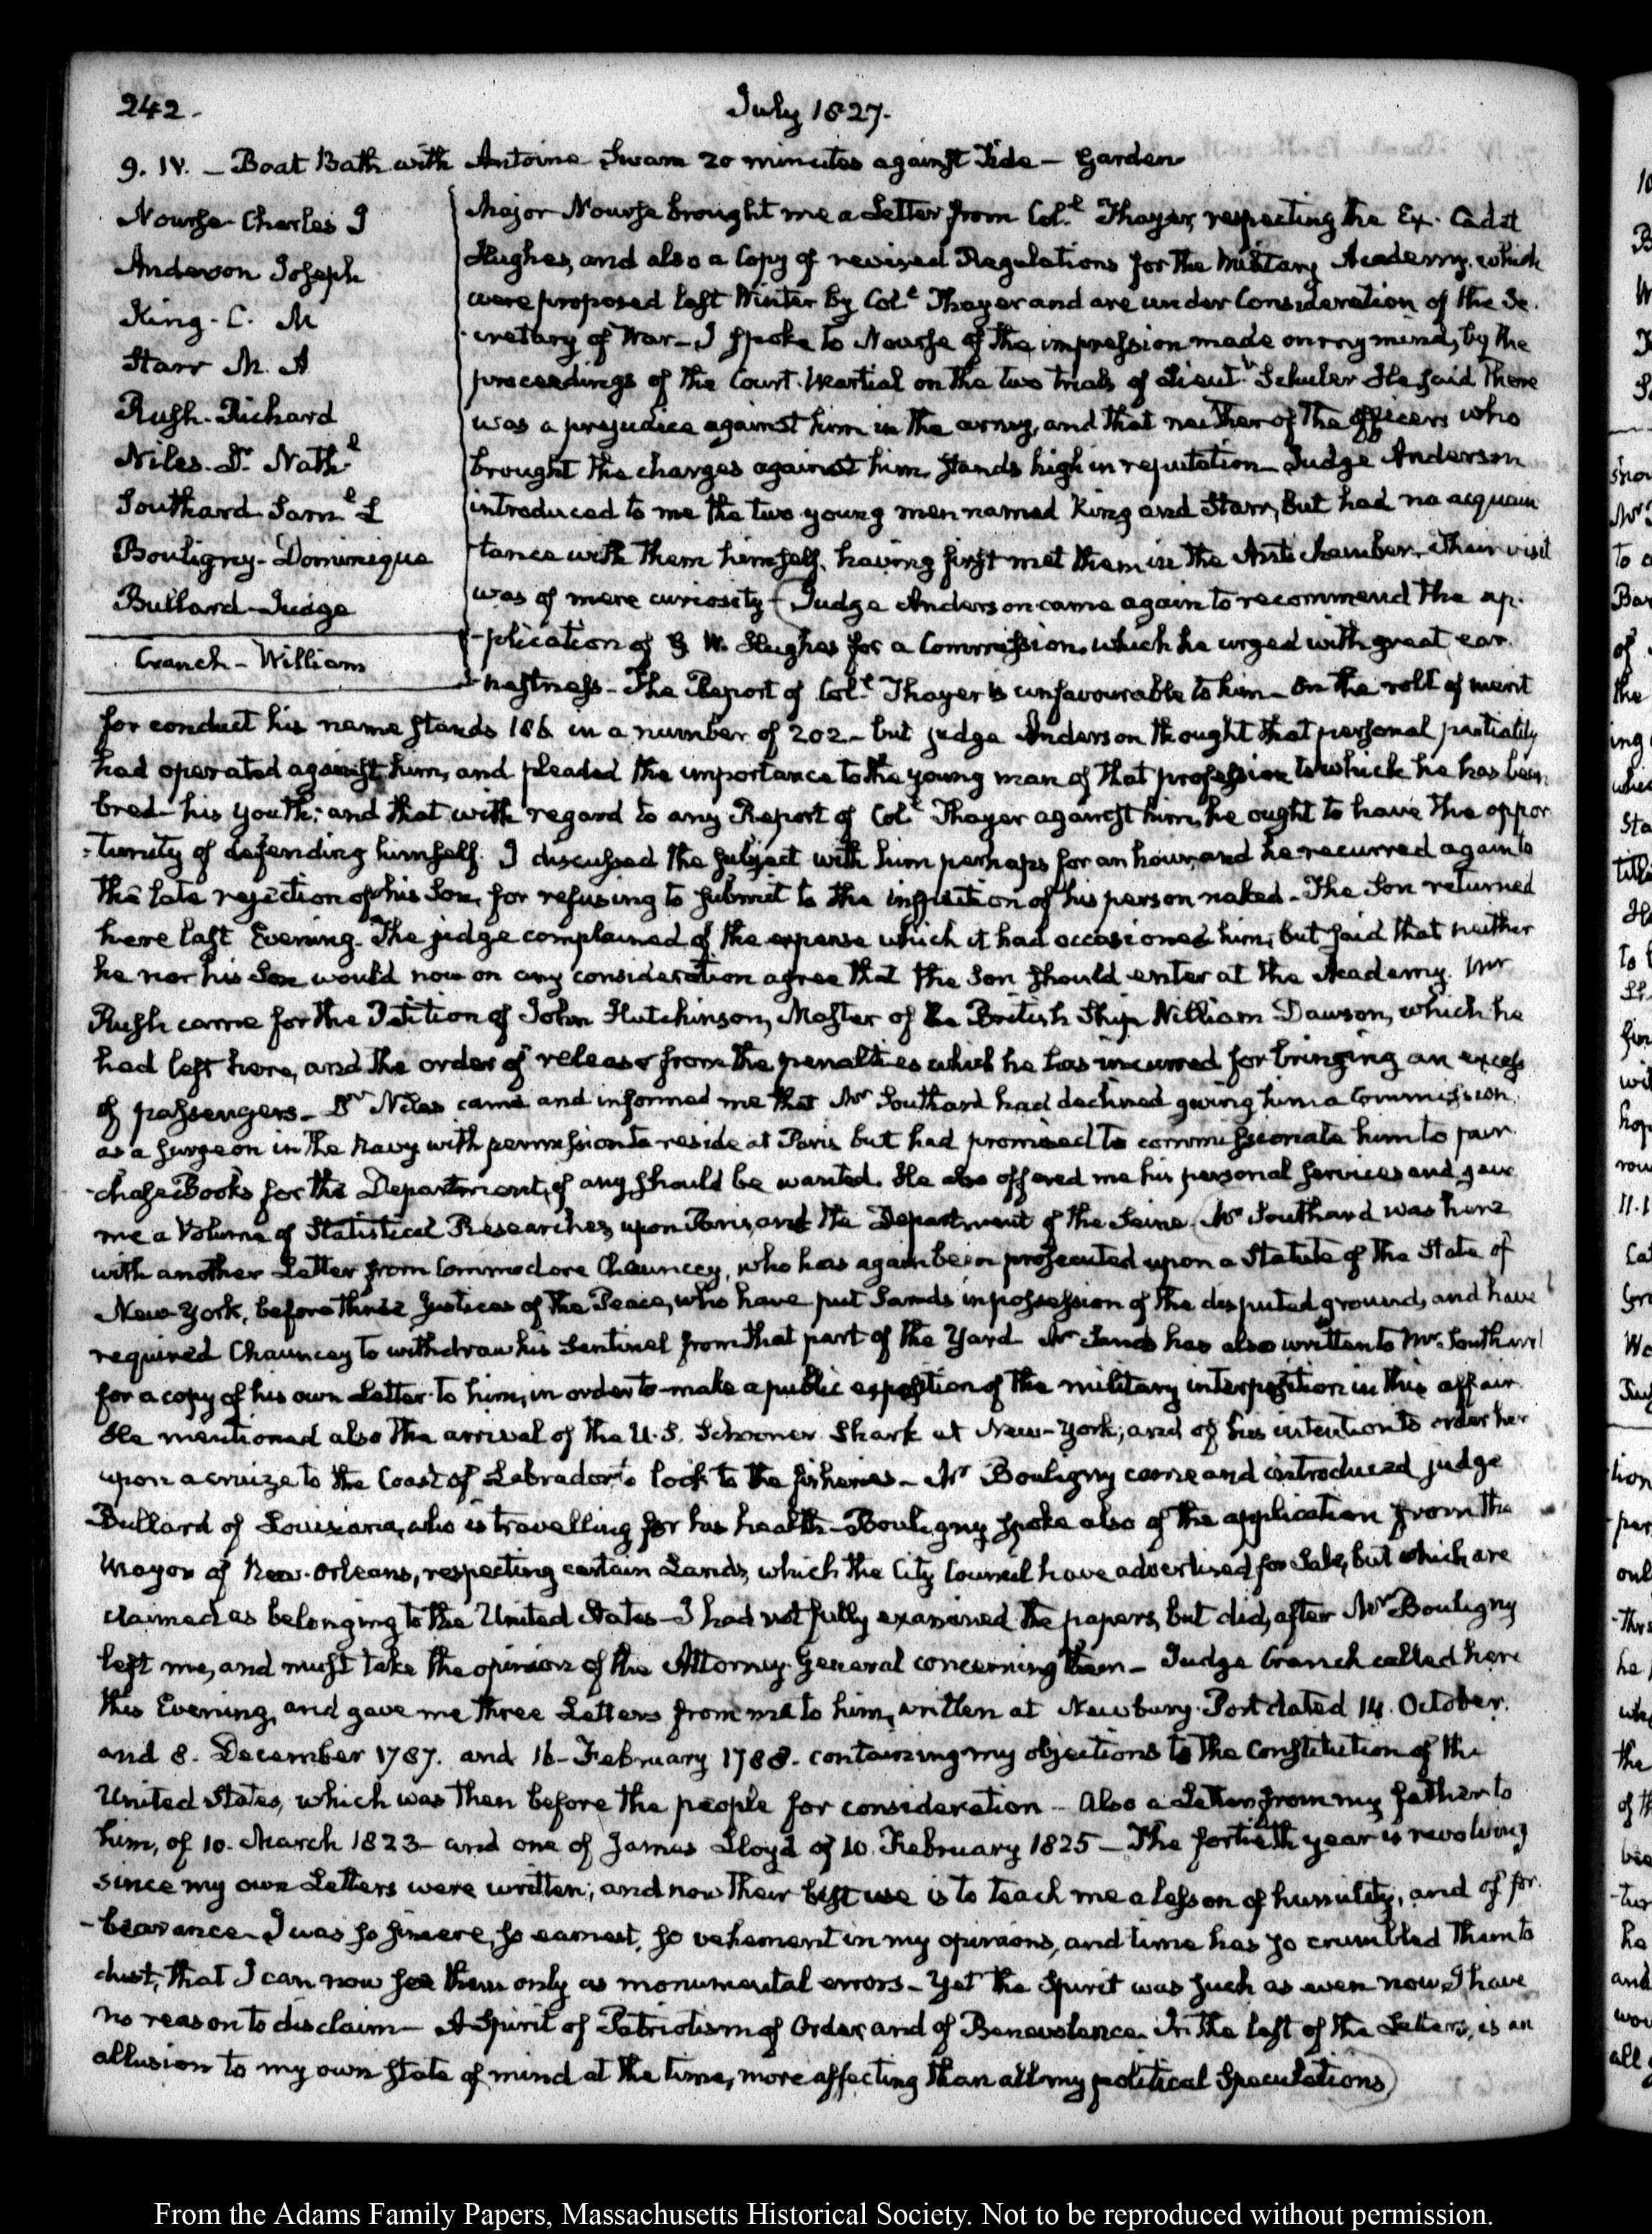 242.
July 1827.
9. IV. — Boat Bath with Antoine Swam 20 minutes against Tide — Garden
Nourse Charles J
Anderson Joseph
King- C. M
Starr M. A
Rush-Richard
Niles- Dr Nathl
Southard Saml L
Bouligny- Dominique
Bullard-Judge
Cranch - William
Major Nourse brought me a Letter from Coll Thayer, respecting the Ex- Cadet
Hughes, and also a Copy of revised Regulations for the Military Academy, which
were proposed last Winter by Coll Thayer and are under Consideration of the Se-
-cretary of War- I spoke to Nourse of the impression made on my mind, by the
proceedings of the Court-Martial on the two trials of Lieutt Schuler He said there
was a prejudice against him in the army, and that neither of the officers who
brought the charges against him, stands high in reputation Judge Anderson
introduced to me the two young men named King and Starr, but had no acquain
-tance with them himself, having first met them in the Anti chamber- Their visit
was of mere curiosity- (Judge Anderson came again to recommend the ap-
-plication of G W. Hughes for a Commission, which he urged with great ear-
-nestness- The Report of Coll Thayer is unfavourable to him- On the roll of merit
for conduct his name stands 186 in a number of 202- but judge Anderson thought that personal partiality
had operated against him, and pleaded the importance to the young man of that profession to which he has been
bred his youth; and that with regard to any Report of Coll Thayer against him, he ought to have the oppor
-tunity of defending himself. I discussed the subject with him perhaps for an hour, and he recurred again to
the late rejection of his Son, for refusing to submit to the inspection of his person naked- The Son returned
here last Evening. The judge complained of the expense which it had occasioned him, but said that neither
he nor his Son would now on any consideration agree that the Son should enter at the Academy. Mr
Rush came for the Petition of John Hutchinson, Master of the British Ship William Dawson, which he
had left here, and the order of release from the penalties which he has incurred for bringing an excess
of passengers- Dr Niles came and informed me that Mr Southard had declined giving him a Commission
as a surgeon in the Navy with permission to reside at Paris but had promised to commissionate him to pur
-chase Books for the Department, if any should be wanted. He also offered me his personal services and gave
me a Volume of Statistical Researches, upon Paris, and the Department of the Seine. (Mr Southard was here
with another Letter from Commodore Chauncey, who has again been prosecuted upon a Statute of the State of
New-York, before three Justices of the Peace, who have put Sands in possession of the disputed ground, and have
required Chauncey to withdraw his Sentinel from that part of the Yard Mr Sands has also written to Mr Southard
for a copy of his own Letter to him, in order to make a public exposition of the military interposition in this affair.
He mentioned also the arrival of the U.S. Schooner Shark at New-York; and of his intention to order her
upon a cruize to the Coast of Labrador to look to the fisheries- Mr Bouligny came and introduced judge
Bullard of Louisiana, who is travelling for his health- Bouligny spoke also of the application from the
Mayor of New-Orleans, respecting certain Lands, which the City Council have advertised for Sale, but which are
claimed as belonging to the United States- I had not fully examined the papers, but did, after Mr Bouligny
left me, and must take the opinion of the Attorney-General concerning them- Judge Cranch called here
this Evening, and gave me three Letters from me to him, written at Newbury-Port dated 14. October.
and 8. December 1787. and 16- February 1788- containing my objections to the Constitution of the
United States, which was then before the people for consideration- Also a Letter from my father to
him, of 10. March 1823- and one of James Lloyd of 10. February 1825- The fortieth year is revolving
since my own Letters were written; and now their best use is to teach me a lesson of humility, and of for-
-bearance- I was so sincere, so earnest, so vehement in my opinions, and time has so crumbled them to
dust, that I can now see them only as monumental errors- Yet the Spirit was such as even now I have
no reason to disclaim- A Spirit of Patriotism of Order, and of Benevolence. In the last of the Letters, is an
allusion to my own state of mind at the time, more affecting than all my political Speculations)
From the Adams Family Papers, Massachusetts Historical Society. Not to be reproduced without permission.